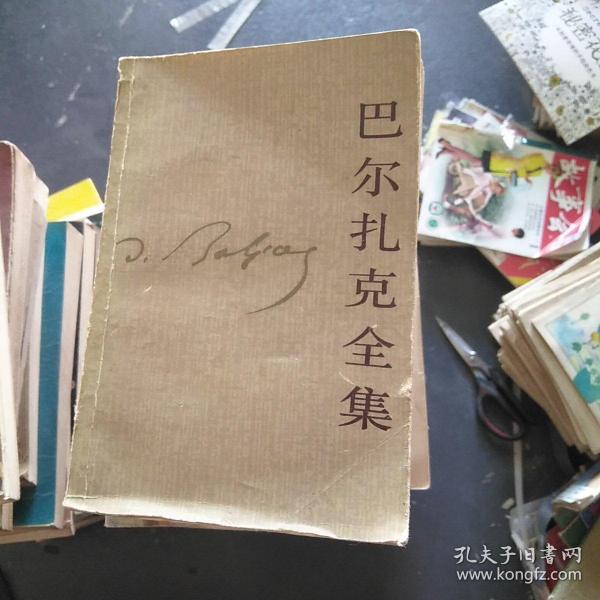 巴尔扎克全集
故事会
孔夫子旧书网
www.kongfz.com